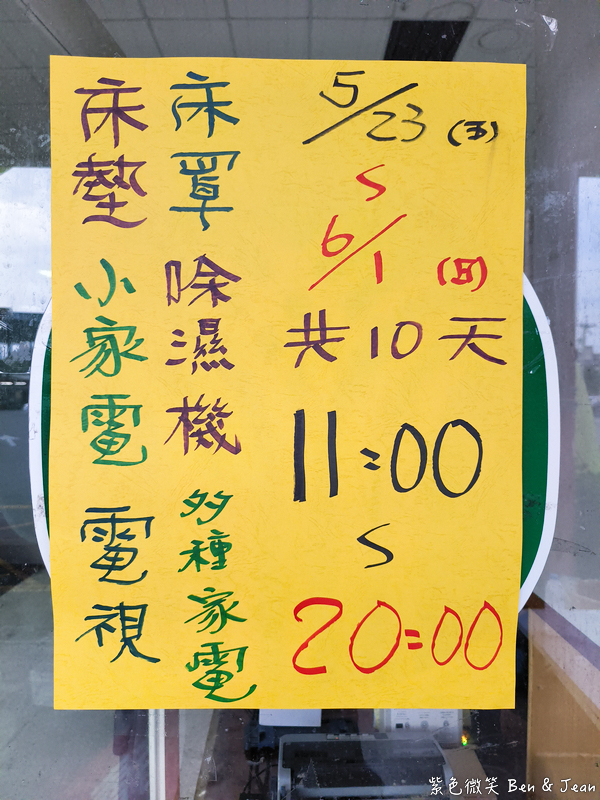 5/23 (五)
S
6/1 (日)
共10天
11:00
S
20:00
床罩
除濕機
多種家電
床墊
小家電
電視
紫色微笑 Ben & Jean